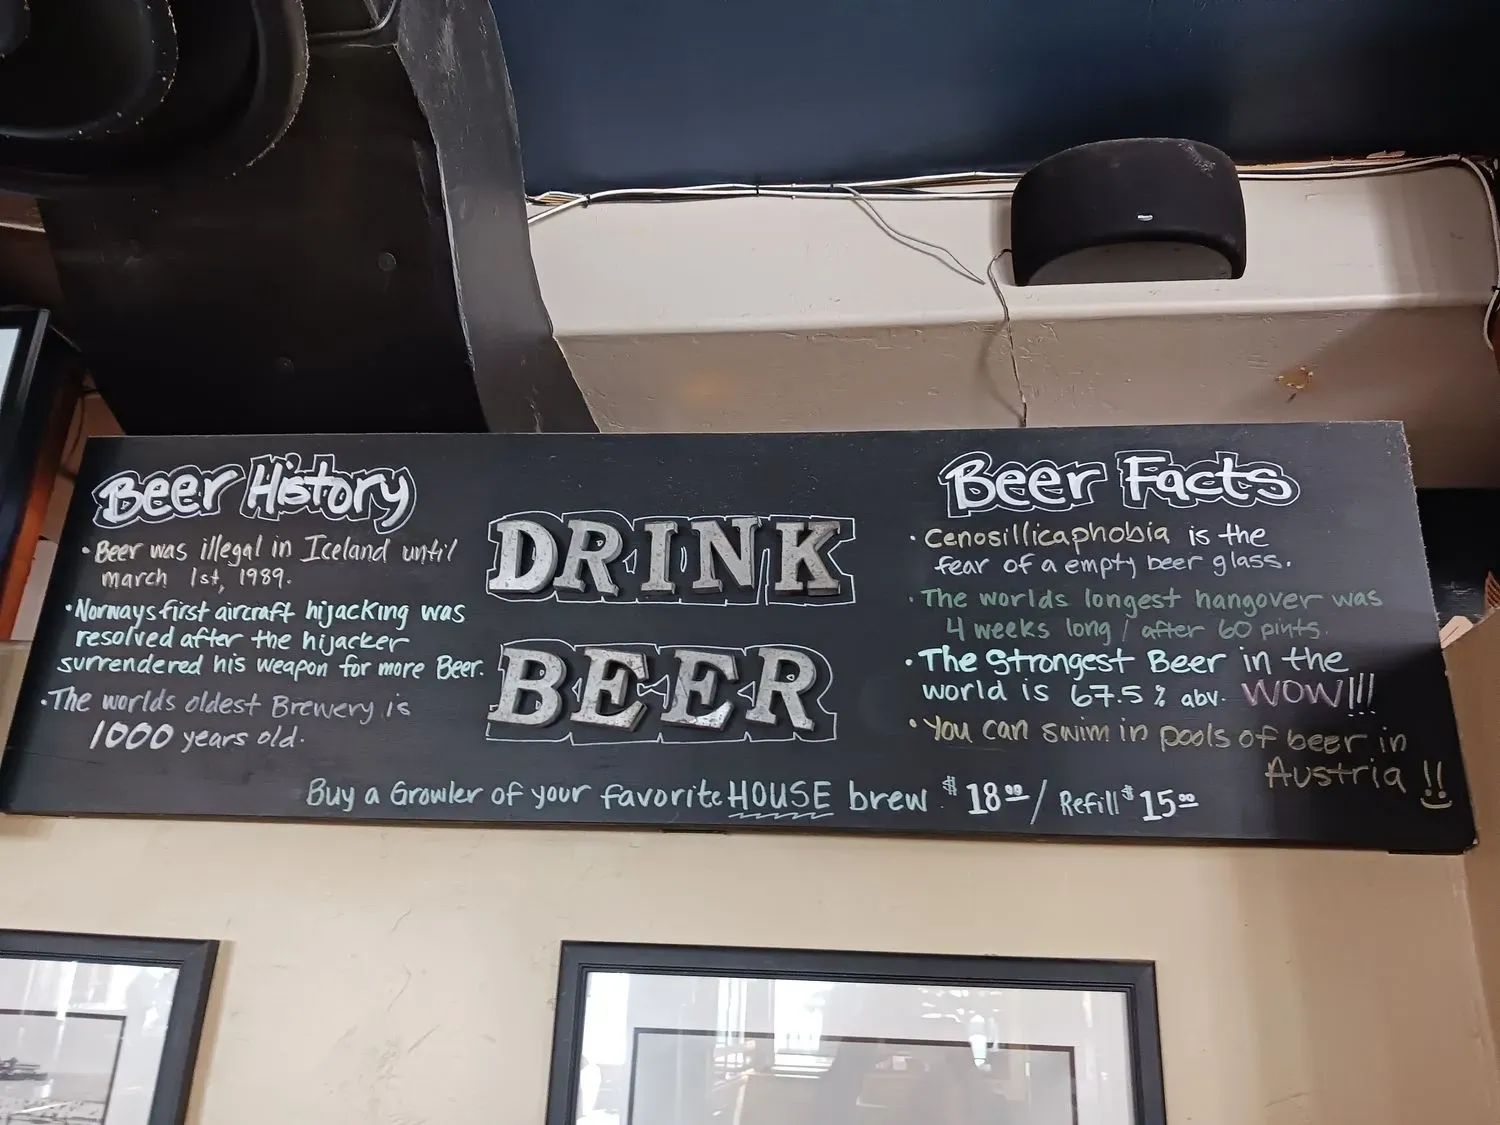 Beer History
• Beer was illegal in Iceland until
march 1st, 1989.
• Norways first aircraft hijacking was
resolved after the hijacker
surrendered his weapon for more Beer.
• The worlds oldest Brewery is
1000 years old.
DRINK
BEER
Beer Facts
• Cenosillicaphobia is the
fear of a empty beer glass.
• The worlds longest hangover was
4 weeks long / after 60 pints.
• The Strongest Beer in the
world is 67.5% abv. WOW!!!
• You can swim in pools of beer in
Austria !!
Buy a Growler of your favorite HOUSE brew $18.00 / Refill $15.00